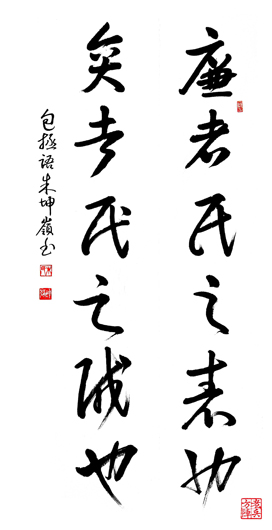 廉者民之表也
贪者民之贼也
包拯语朱坤嶺书